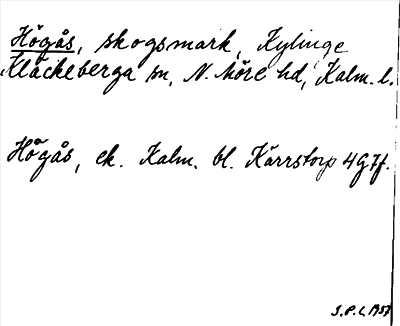 Högås, skogsmark, Kylinge
Kläckeberga sn, N. Möre hd, Kalm. l.
Högås, ek. Kalm. bl. Kärrstorp 4G7f.
S.P.L. 1957